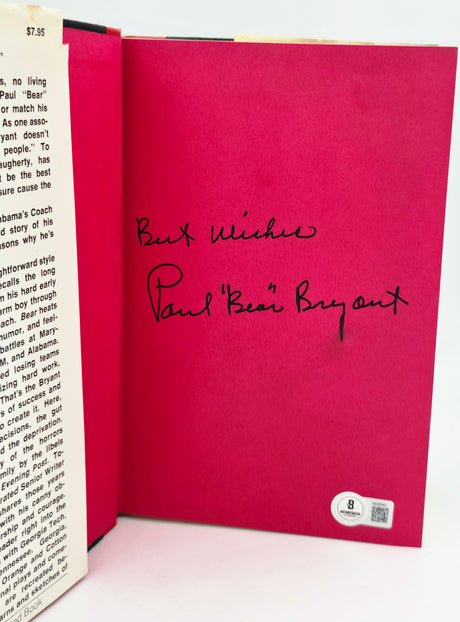 $7.95
"
s, no living
Paul "Bear"
or match his
As one asso-
ryant doesn't
people." To
augherty, has
t be the best
sure cause the
abama's Coach
d story of his
asons why he's
ghtforward style
ecalls the long
m his hard early
arm boy through
ach. Bear heats
humor, and feel-
battles at Mary-
M, and Alabama.
ed losing teams
izing hard work,
That's the Bryant
rs of success and
o create it. Here,
ecisions, the gut
d the deprivation.
y of the horrors
mily by the libels
Evening Post. To-
rated Senior Writer
shares those years
with his canny ob-
ership and courage.
ader right into the
with Georgia Tech,
nnessee, Georgia,
Orange and Cotton
nal plays and come-
are recreated be-
arns and sketches of
ed Book
Best Wishes
Paul "Bear" Bryant
B